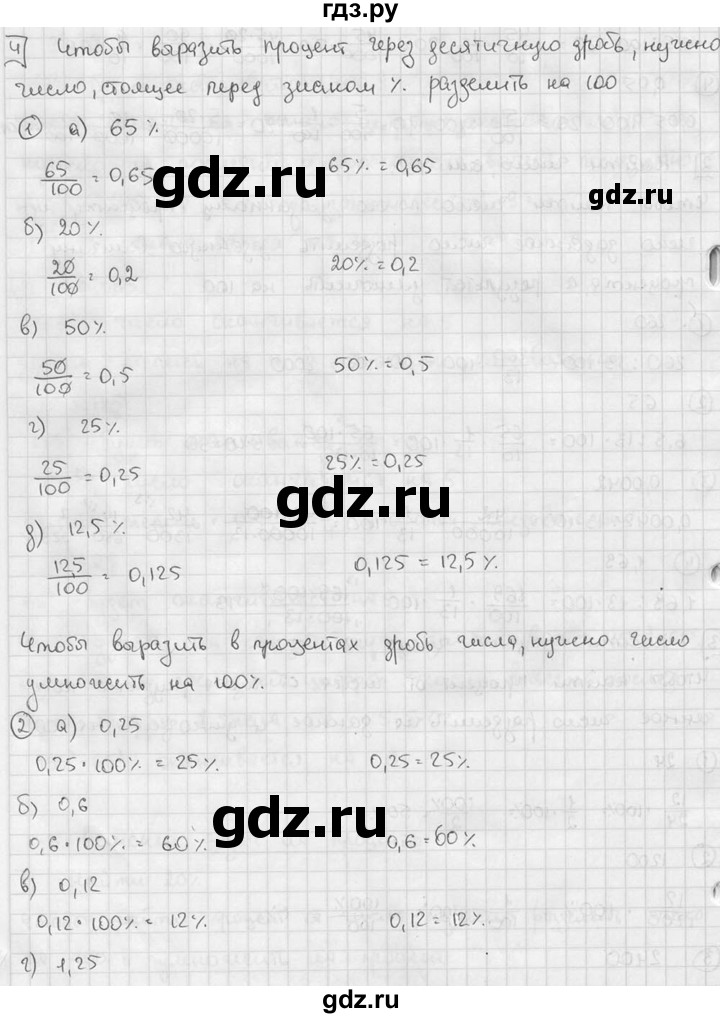 гдз.ру
4 Чтобы выразить процент через десятичную дробь, нужно
число, стоящее перед знаком % разделить на 100
1 а) 65%
65/100 = 0,65 65% = 0,65
gdz.ru
б) 20%
20/100 = 0,2 20% = 0,2
в) 50%
50/100 = 0,5 50% = 0,5
г) 25%
25/100 = 0,25 25% = 0,25
gdz.ru
д) 12,5%
12,5/100 = 0,125 0,125 = 12,5%
Чтобы выразить в процентах дробь числа, нужно число
умножить на 100%.
2 а) 0,25
0,25 · 100% = 25% 0,25 = 25%
б) 0,6
gdz.ru
0,6 · 100% = 60% 0,6 = 60%
в) 0,12
0,12 · 100% = 12% 0,12 = 12%
г) 1,25
gdz.ru